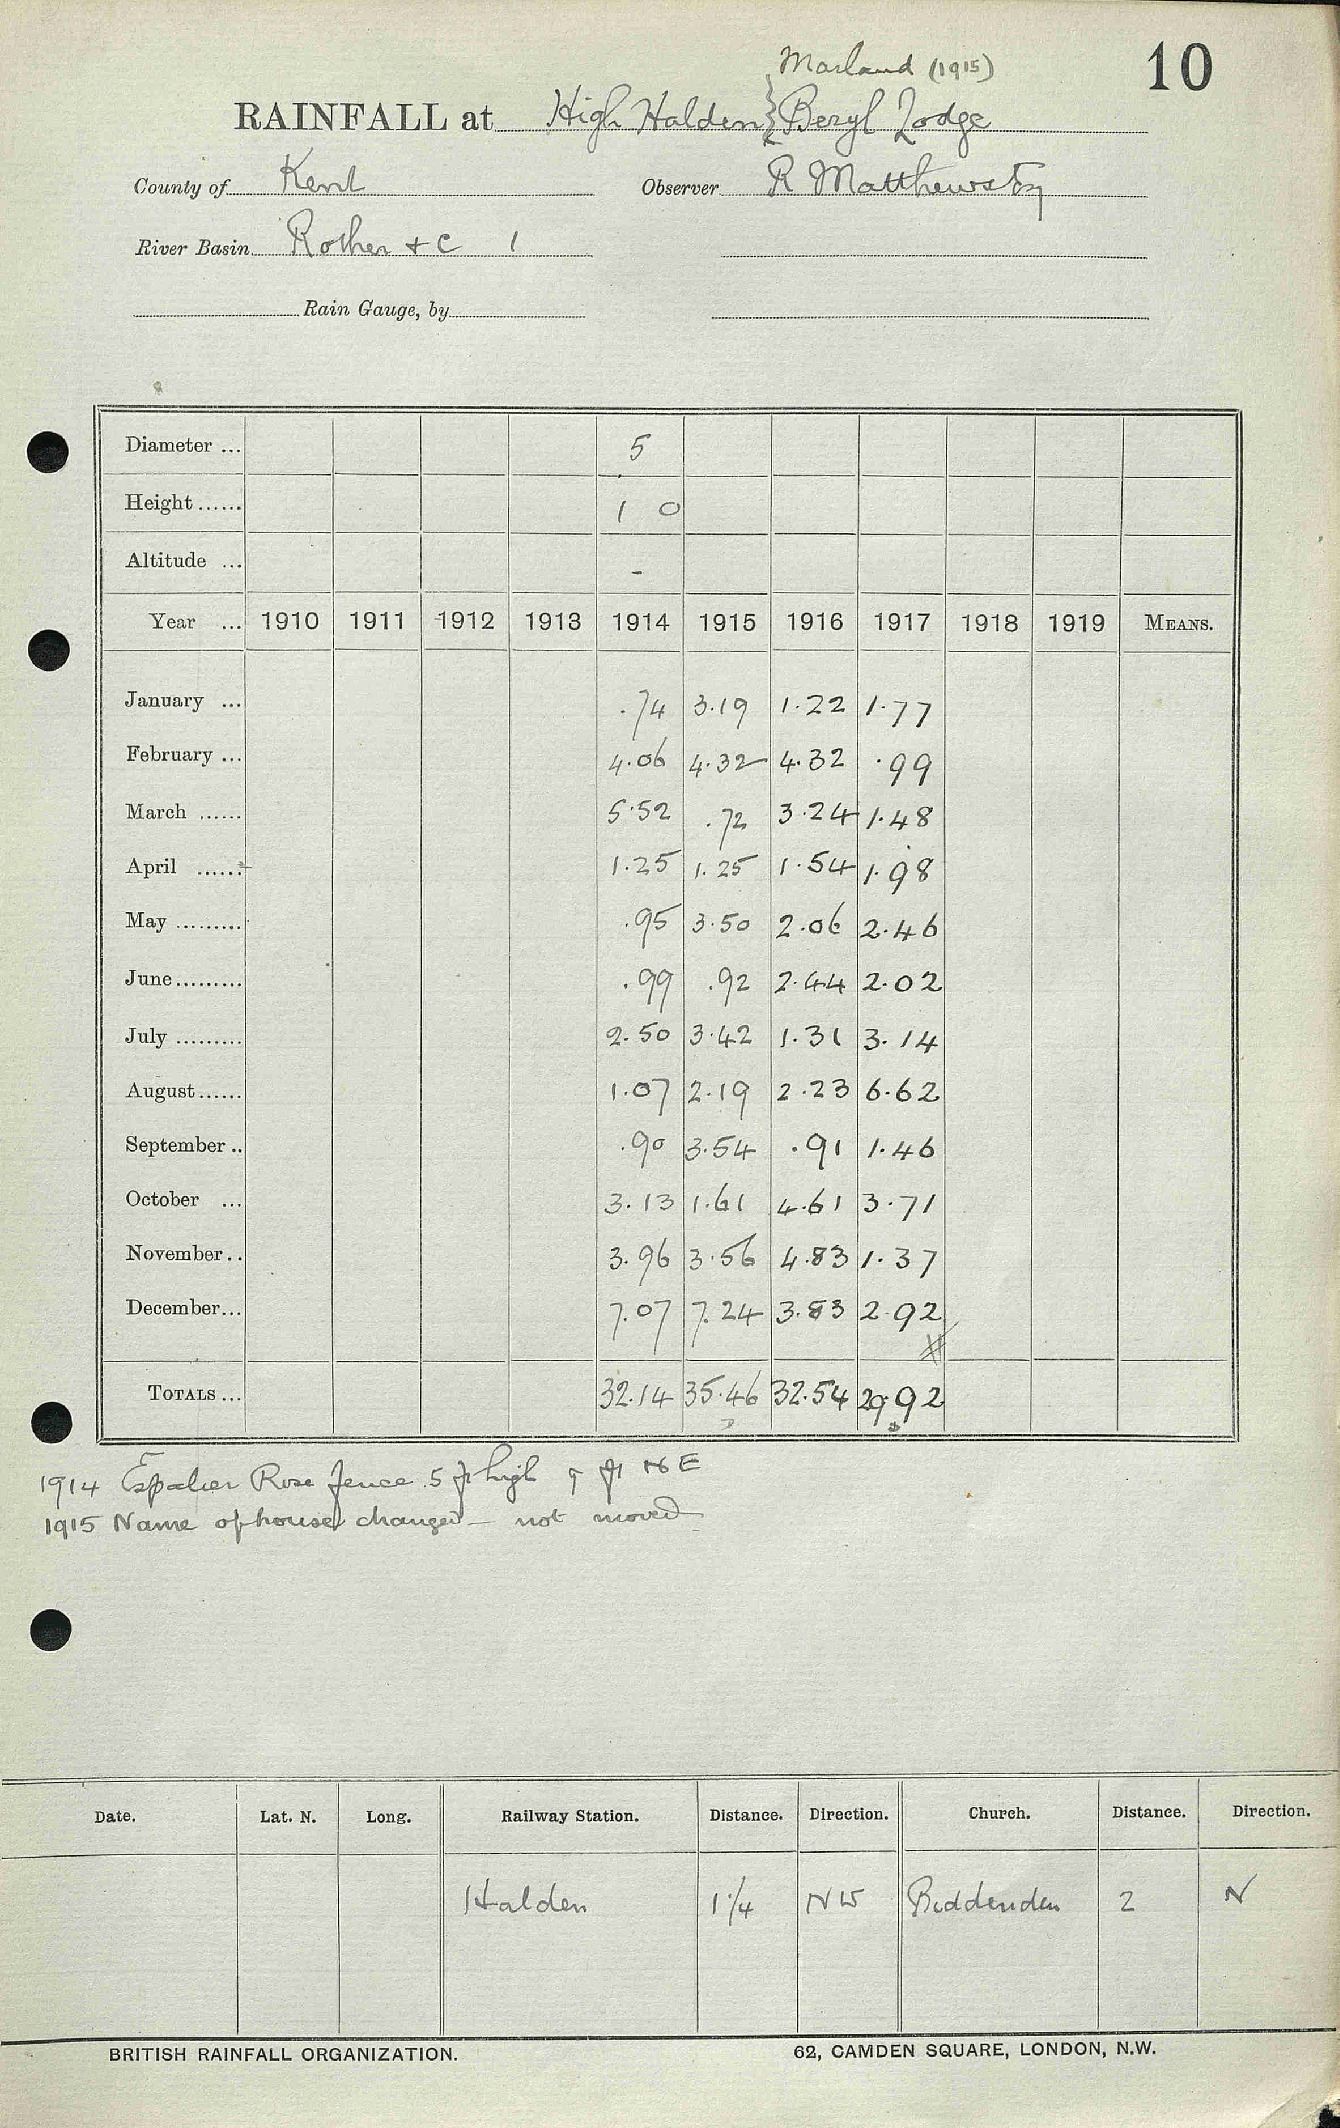 10
Marland (1915)
RAINFALL at High Halden } Beryl Lodge
County of Kent Observer R Matthews Esq
River Basin Rother + C 1
Rain Gauge, by
Diameter ... 5
Height...... 1 0
Altitude ... -
Year ... 1910 1911 1912 1913 1914 1915 1916 1917 1918 1919 MEANS.
January ... .74 3.19 1.22 1.77
February ... 4.06 4.32 4.32 .99
March ...... 5.52 .72 3.24 1.48
April ...... 1.25 1.25 1.54 1.98
May ......... .95 3.50 2.06 2.46
June......... .99 .92 2.44 2.02
July ......... 2.50 3.42 1.31 3.14
August...... 1.07 2.19 2.23 6.62
September.. .90 3.54 .91 1.46
October ... 3.13 1.61 4.61 3.71
November.. 3.96 3.56 4.83 1.37
December... 7.07 7.24 3.83 2.92
TOTALS... 32.14 35.46 32.54 29.92
1914 Espalier Rose fence 5 ft high 9 ft NE
1915 Name of house changed - not moved
Date. Lat. N. Long. Railway Station. Distance. Direction. Church. Distance. Direction.
Halden 1 1/4 NW Biddenden 2 N
BRITISH RAINFALL ORGANIZATION. 62, CAMDEN SQUARE, LONDON, N.W.